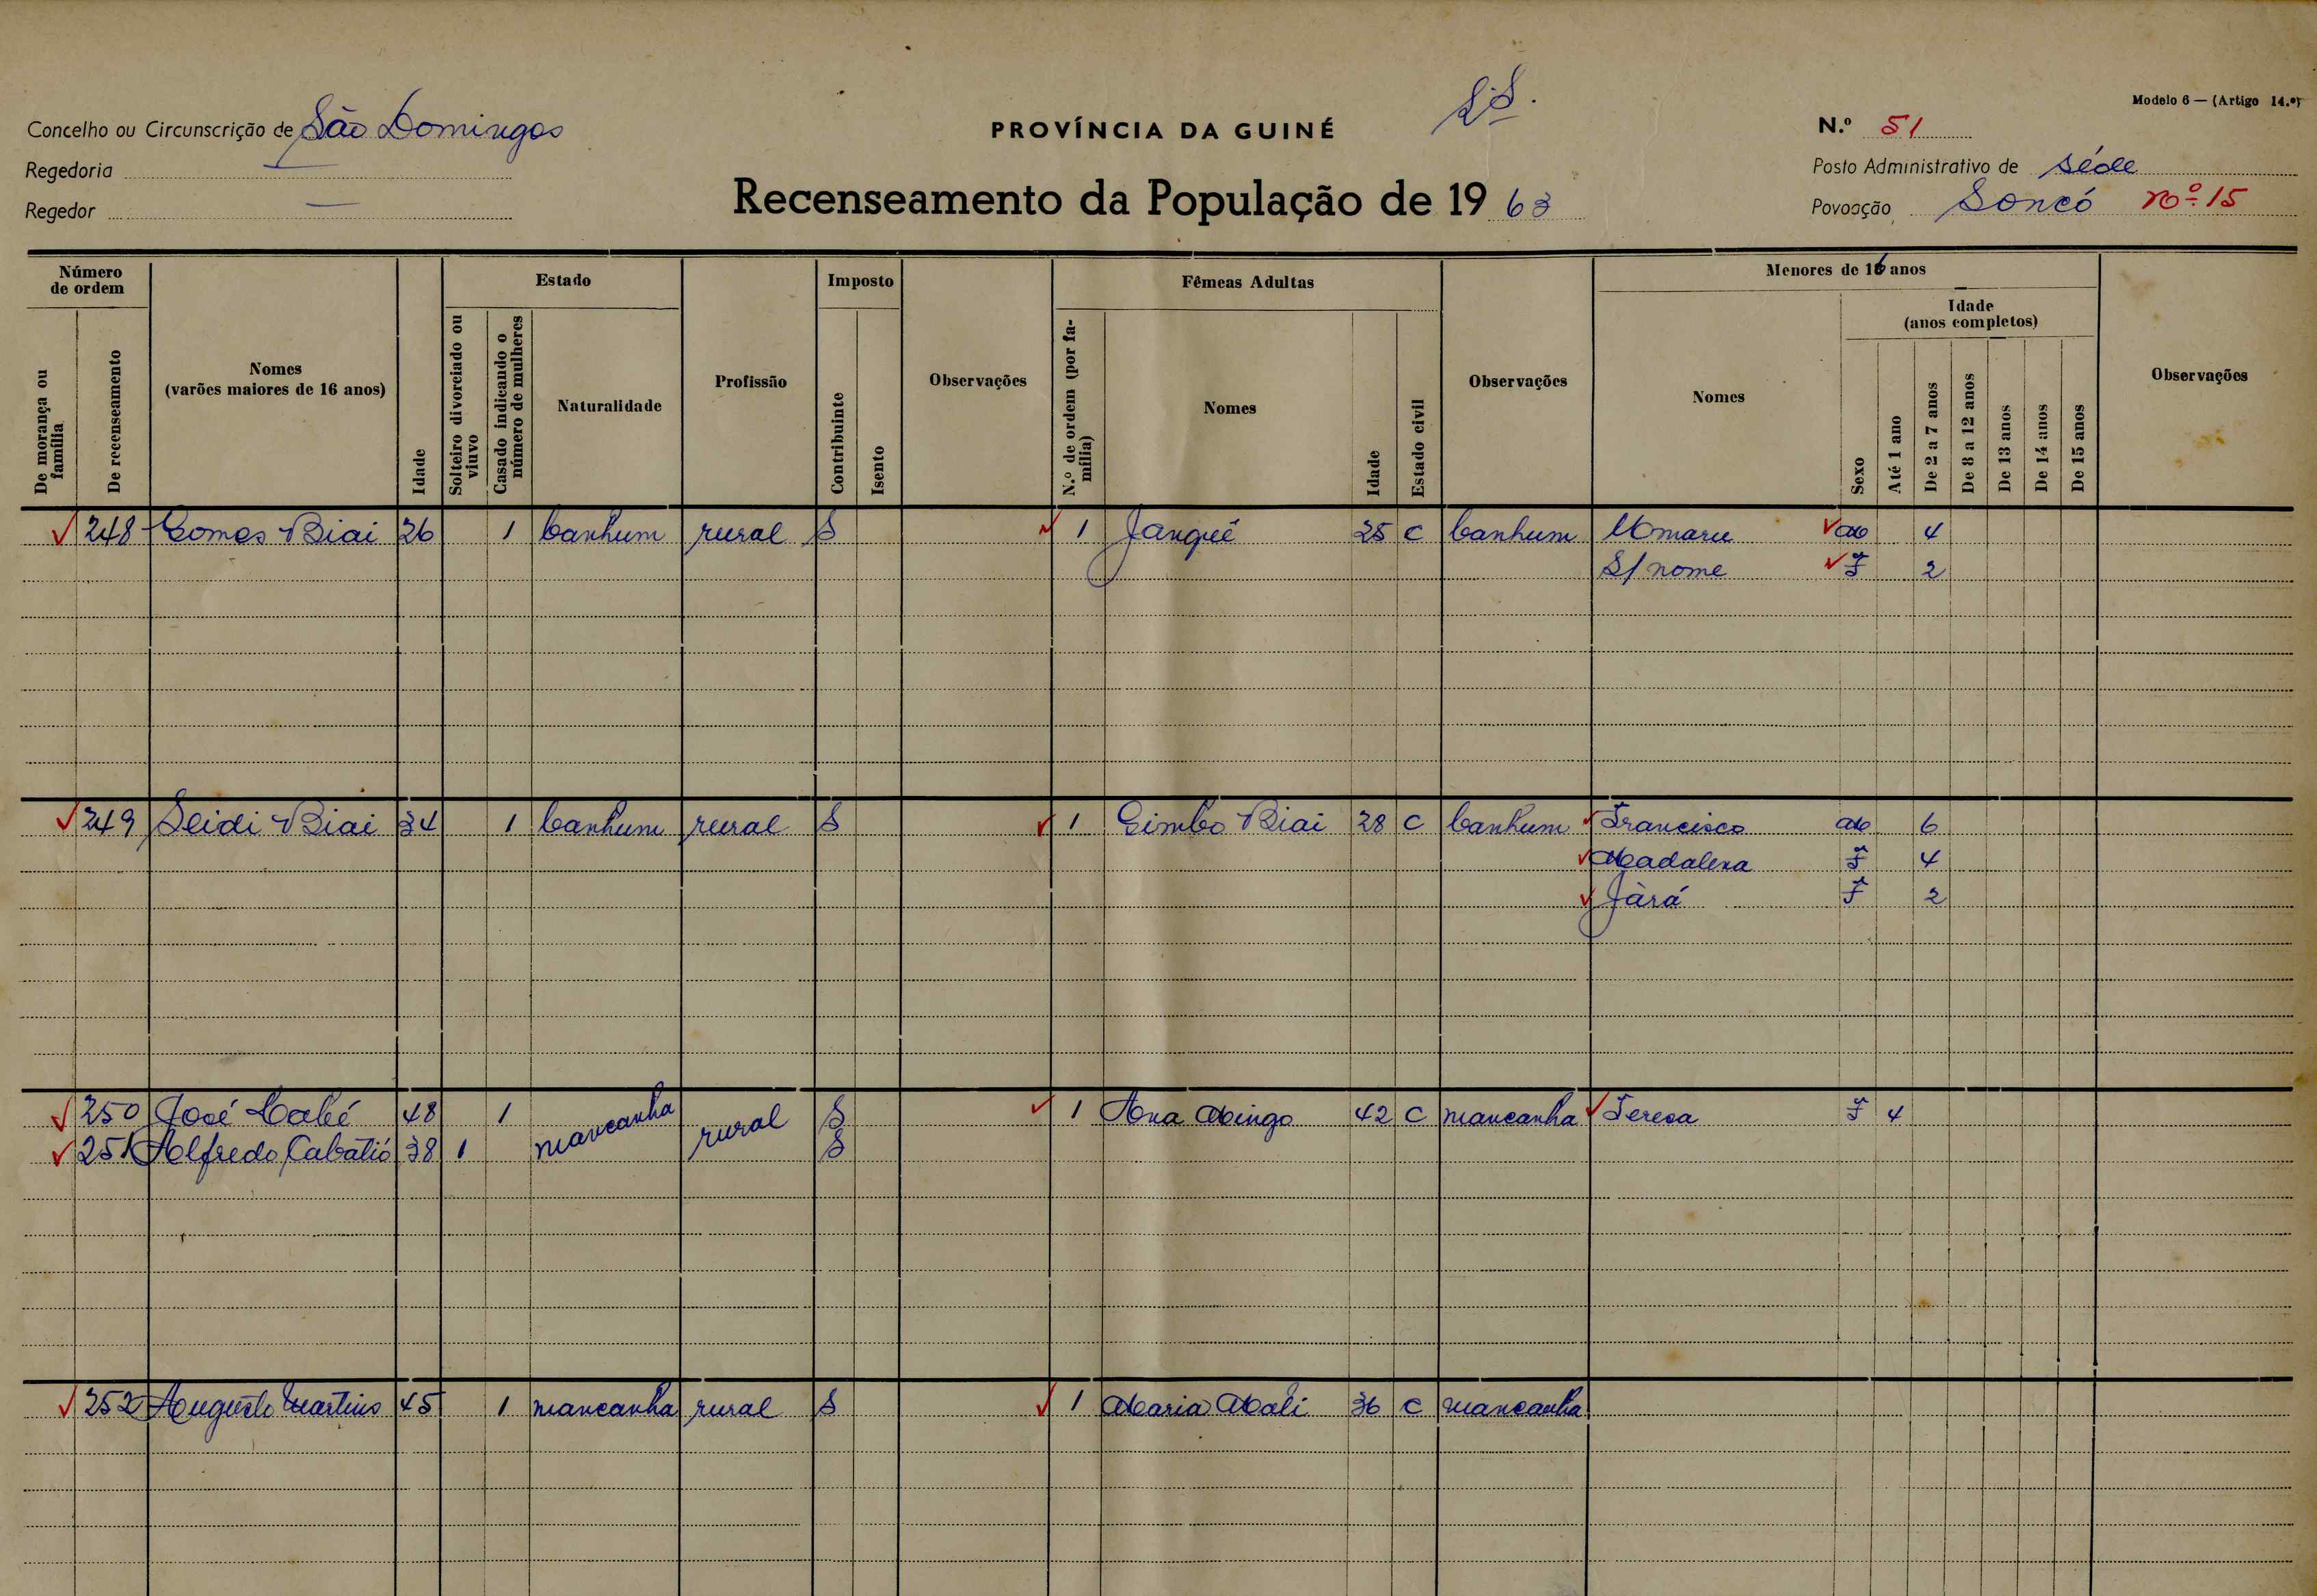 S.S.
Modelo 6 — (Artigo 14.º)
Concelho ou Circunscrição de São Domingos
PROVÍNCIA DA GUINÉ
N.º 51
Regedoria —
Posto Administrativo de Séde
Regedor —
Recenseamento da População de 1963
Povoação Soncó nº 15
Número de ordem
De morança ou família
De recenseamento
Nomes
(varões maiores de 16 anos)
Idade
Estado
Solteiro divorciado ou viuvo
Casado indicando o número de mulheres
Naturalidade
Profissão
Imposto
Contribuinte
Isento
Observações
Fêmeas Adultas
N.º de ordem (por família)
Nomes
Idade
Estado civil
Observações
Menores de 16 anos
Nomes
Sexo
Idade
(anos completos)
Até 1 ano
De 2 a 7 anos
De 8 a 12 anos
De 13 anos
De 14 anos
De 15 anos
Observações
248 Gomes Biai 26 1 banhum rural S 1 Janqué 25 C banhum Umaru M 4
S/ nome F 2
249 Seidi Biai 34 1 banhum rural S 1 Gimbo Biai 28 C banhum Francisco M 6
Madalena F 4
Járá F 2
250 José 48 1 mancanha rural S 1 Ana Mingo 42 C mancanha Teresa F 4
251 Alfredo Cabatió 38 1 S
252 Augusto Martins 45 1 mancanha rural S 1 Maria Mali 36 C mancanha